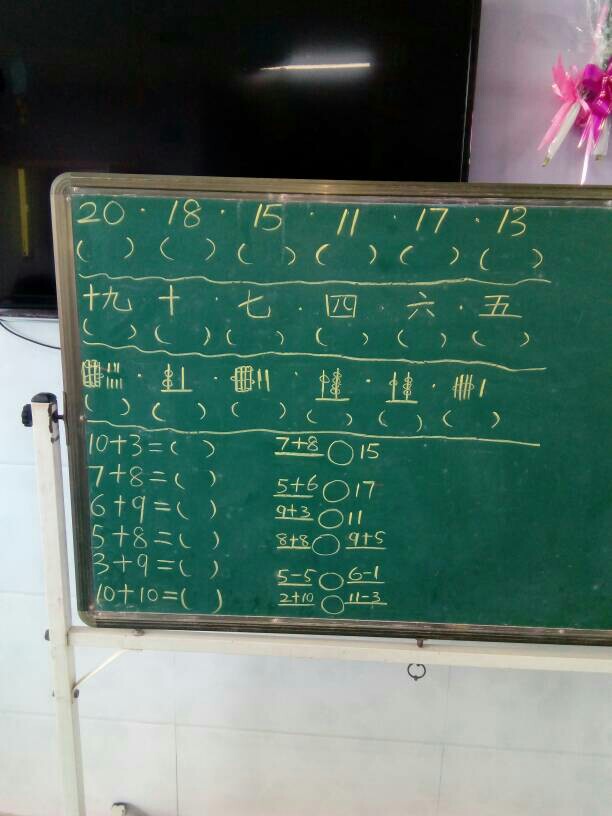 20 · 18 · 15 · 11 · 17 · 13
( ) ( ) ( ) ( ) ( ) ( )
十九 十 · 七 · 四 · 六 · 五
( ) ( ) ( ) ( ) ( ) ( )
( ) ( ) ( ) ( ) ( ) ( )
10+3=( ) 7+8○15
7+8=( ) 5+6○17
6+9=( ) 9+3○11
5+8=( ) 8+8○9+5
3+9=( ) 5-5○6-1
10+10=( ) 2+10○11-3